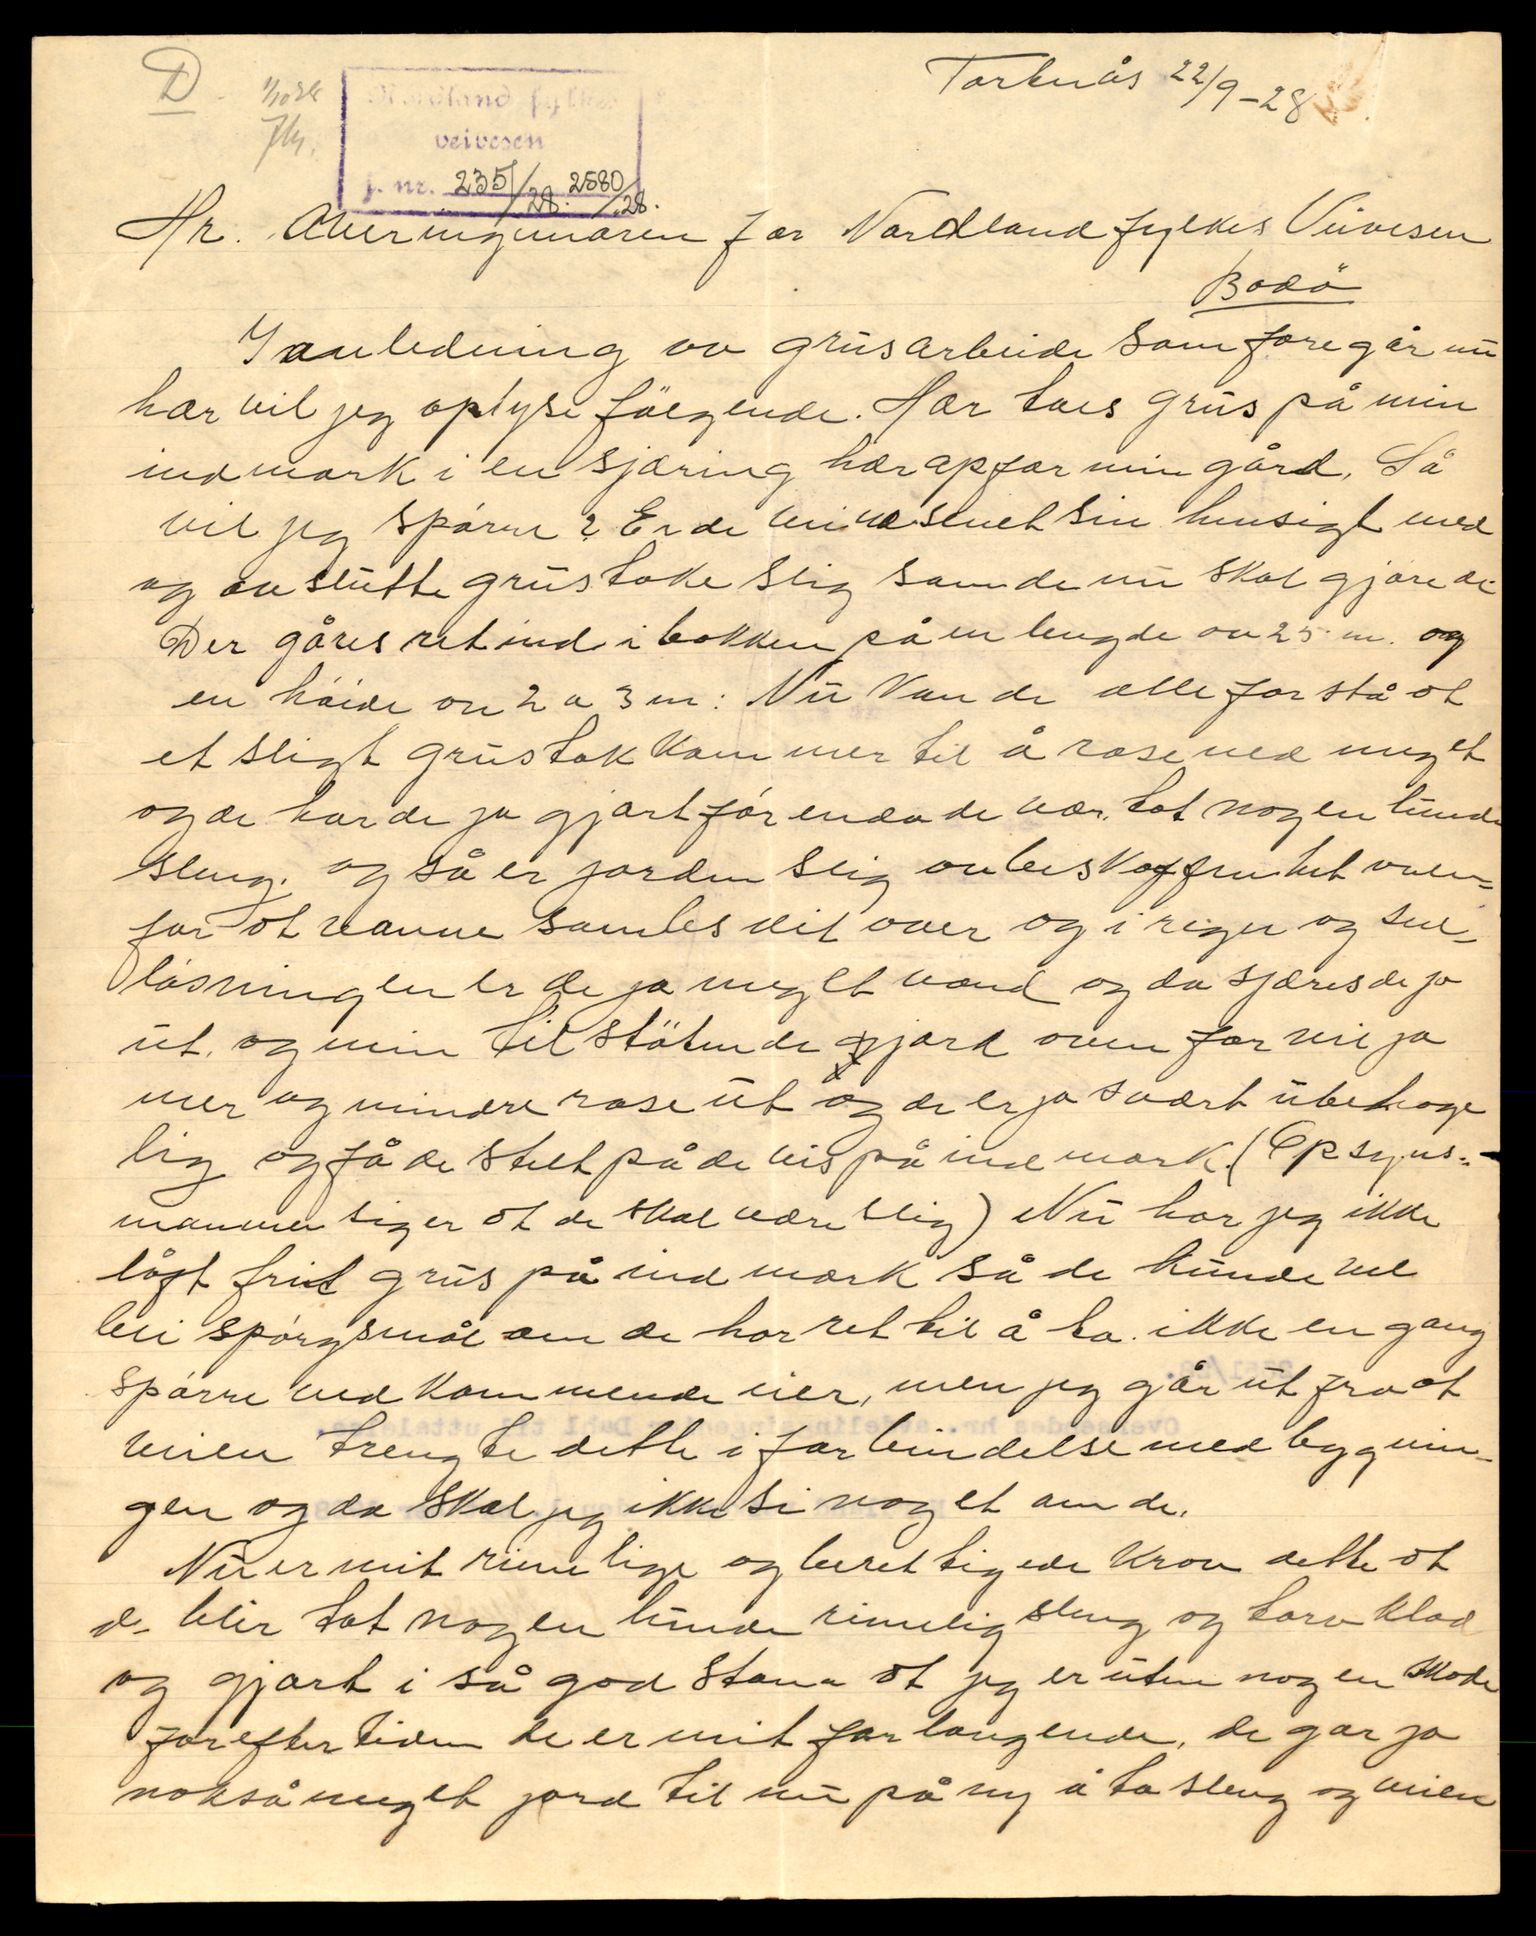 D
1/10 28
Torknås 22/9-28
Nordland fylkes
veivesen
j. nr. 235/28. 2580/28.
Hr. Overingeniøren for Nordland fylkes Veivesen
Bodö
I anledning av grusarbeide som foregår nu
her vil jeg oplyse følgende. Her taes grus på min
indmark i en sjæring her op for min gård. Så
vil jeg spørre? Er de veivesenet sin hensigt med
og avslutte grustake slig som de nu skal gjøre de
Der gåres ret ind i bakken på en lengde av 25 m. og
en høide av 2 a 3 m: Nu kan de alle forstå at
et sligt grustak kommer til å rase ned meget
og de harde ja gjort før enda de var tat nogenlunde
sleng. og så er jorden slig av beskaffenhet oven-
for at vanne samles dit over og i regn og sne-
løsningen er de ja meget vand og da sjæres de ja
ut. og min tilstøtende jord oven for vil ja
mer og mindre rase ut og de er ja svært ubehage
lig og få de stelt på de vis på indmark. (Opsyns-
mannen siger at de skal være slig) Nu har jeg ikke
låft frit grus på indmark så de kunde vel
bli spørgsmål om de har ret til å ta. ikke engang
spørre vedkommende eier, men jeg går ut fra at
veien trengte dette i forbindelse med bygnin-
gen og da skal jeg ikke si noget om de.
Nu er mit rimelige og berettigede krav dette at
de blir tat nogenlunde rimelig sleng og torvklad
og gjort i så god stand at jeg er uten nogen skade
for eftertiden de er mit forlangende, de gar ja
nokså meget jord til nu på ny å ta sleng og veien